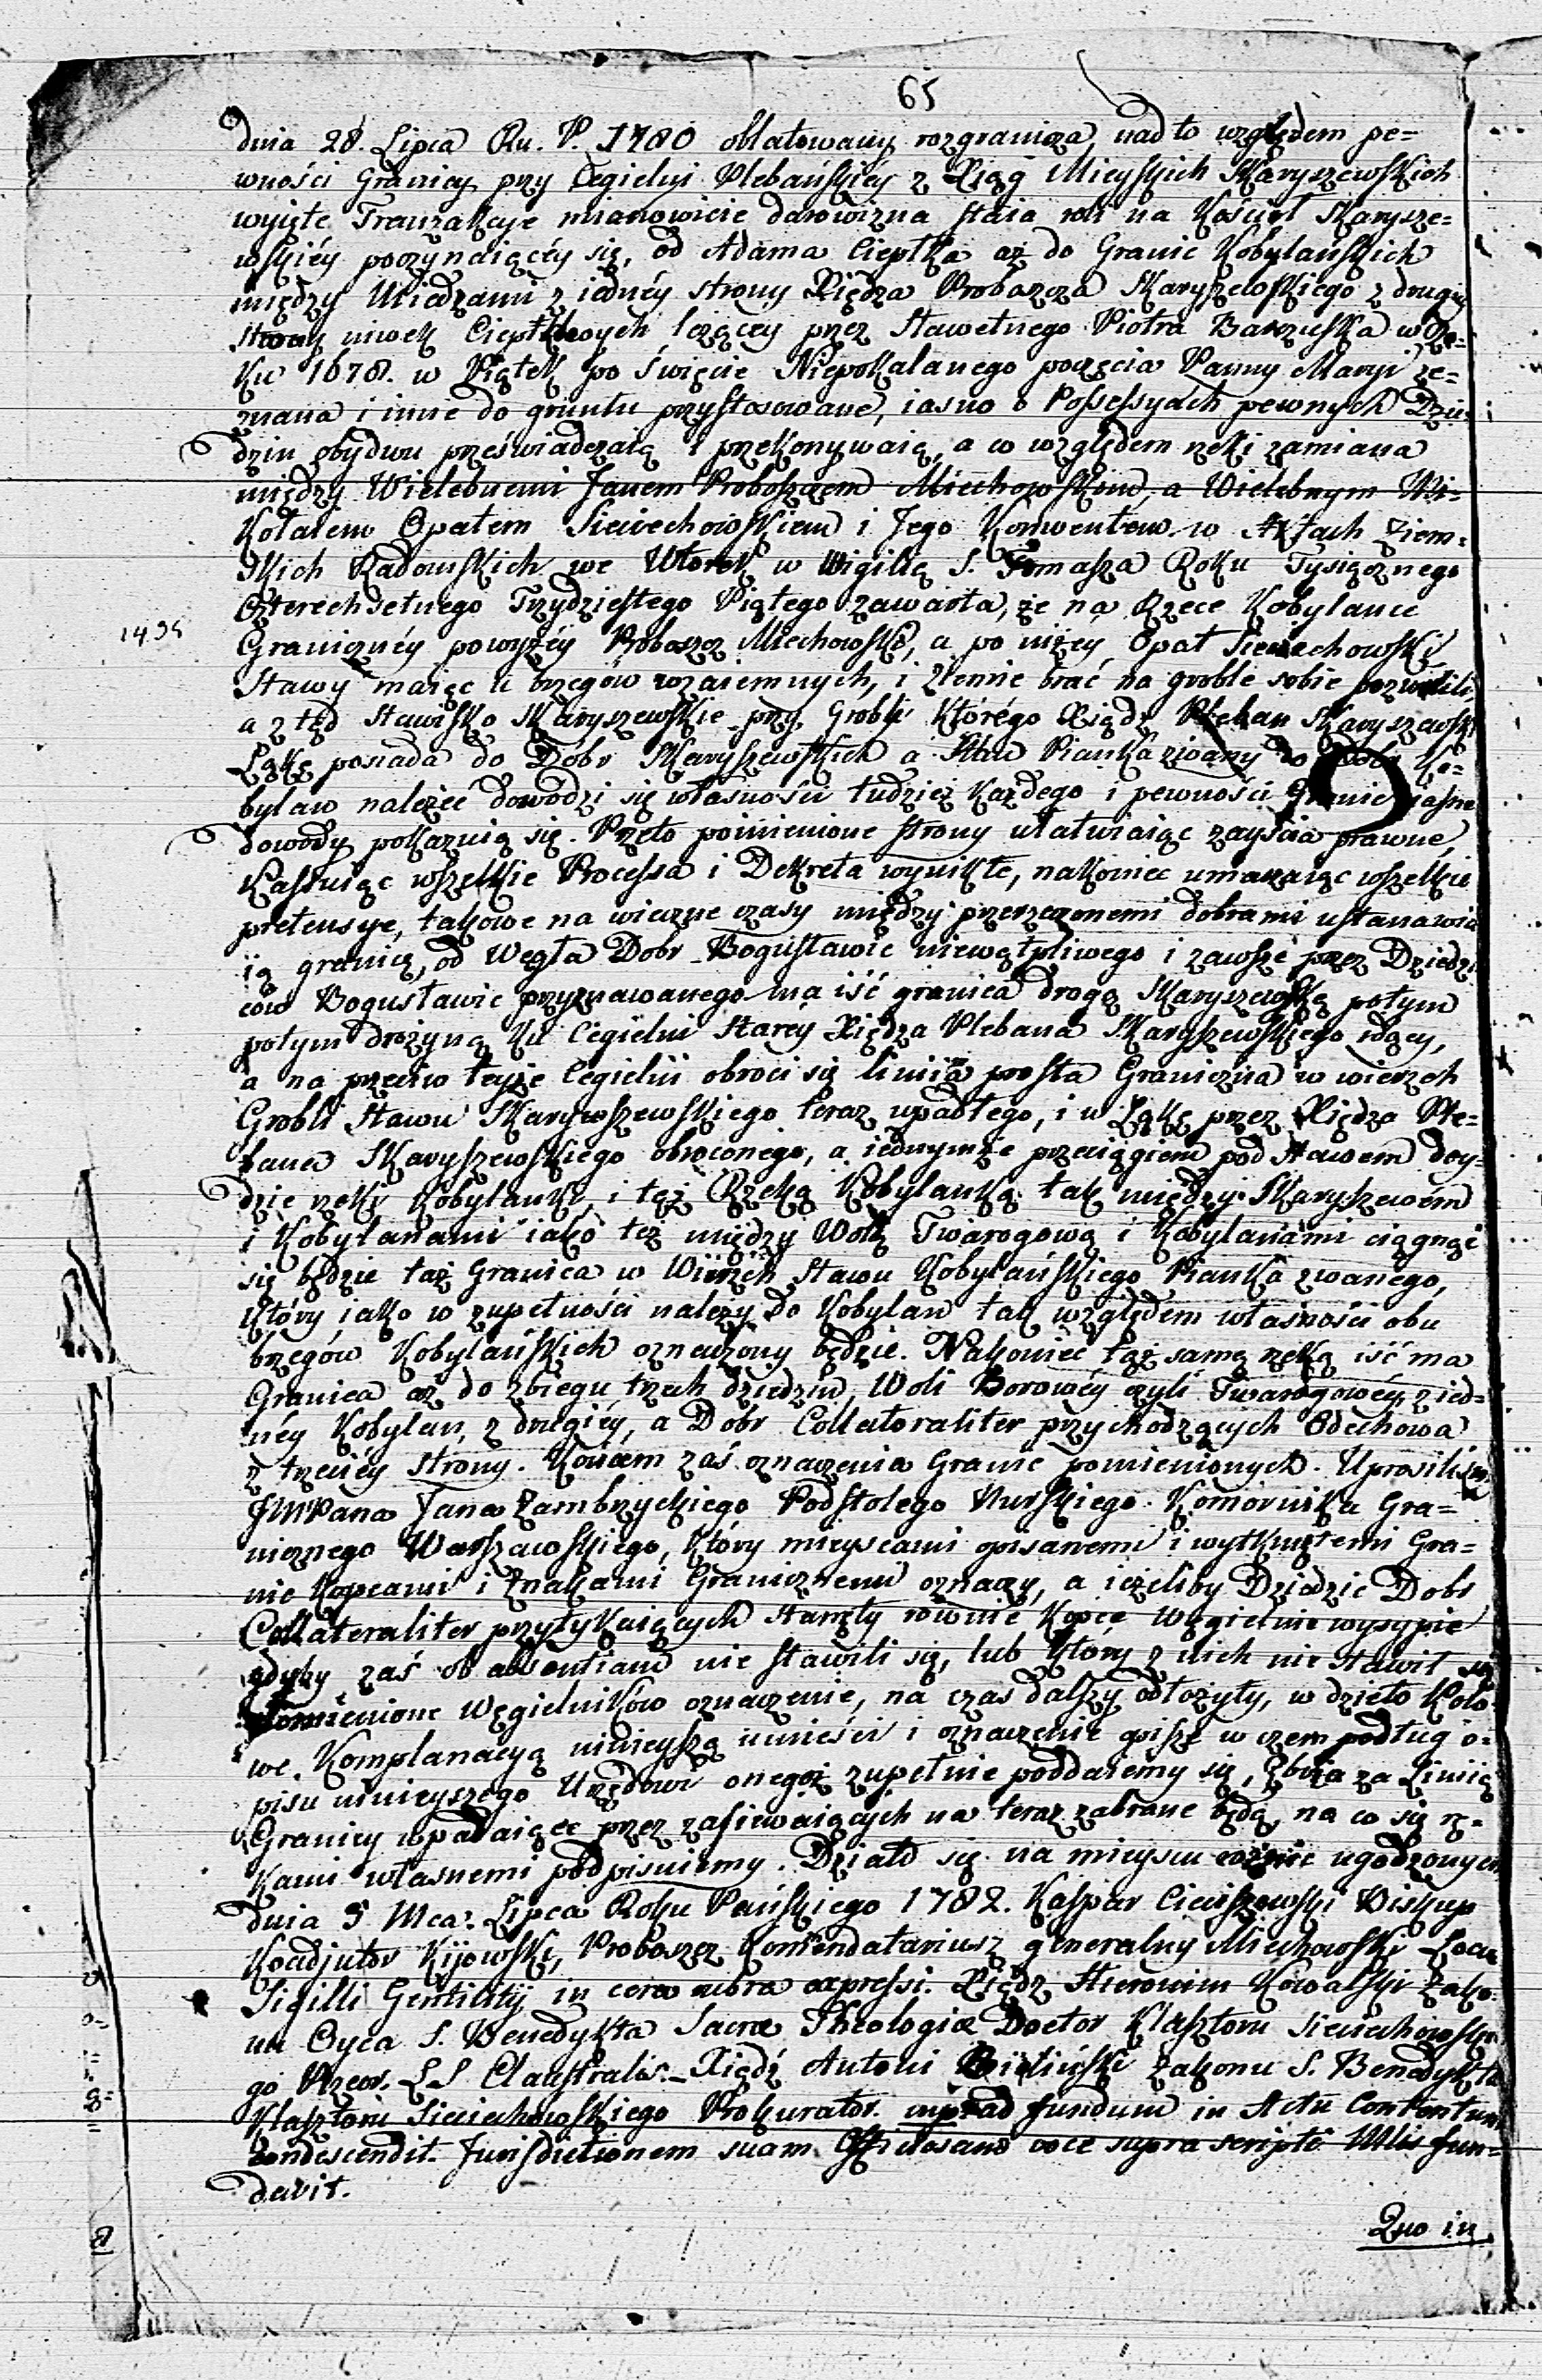 65
dnia 28. Lipca Ru. P. 1780 oblatowany rozgranicza, nad to względem pe=
wności Granicy przy Cegielni Plebańskiéy z Xiąg Mieyskich Skaryszewskich
wyięte Tranzakcye mianowicie darowizna staia roli na Kościoł Skarysze=
wskiéy poczynaiącéy się, od Adama Ciepłka aż do Granic Kobylańskich
między Miedzami z iednéy strony Xiędza Probaszcza Skaryszewskiego z drugiey
strony niwek Ciepłkowych leżącey przez Sławetnego Piotra Banzuska w Ro=
ku 1678. w Piątek po święcie Niepokalanego poczęcia Panny Maryi ze=
znana i inne do gruntu przystosowane, iasno o Possessyach pewnych Dzie=
dzin obydwu przeświadczaią i przekonywaią, a w względem rzeki zamiana
między Wielebnemi Janem Proboszczem Miechowskim, a Wielebnym Mi=
kołaiem Opatem Sieciechowskiem i Jego Konwentem w Aktach Ziem=
skich Radomskich we Wtorek w Wigilią S. Tomasza Roku Tysiącznego
Czterechsetnego Trzydziestego Piątego zawarta, że na Rzece Kobylance
1435
Granicznéy powyżéy Proboszcz Miechowski, a poniżey Opat Sieciechowski
Stawy maiąc u brzegów wzaiemnych, i Ziemie brać na groble sobie pozwolili
a z tąd Stawisko Skaryszewskie przy Grobli którégo Xiądz Pleban Skaryszewski
Łąkę posiada do Dóbr Skaryszewskich a Staw Pianka zwany do Dobr Ko=
bylan należéć dowodzi się własności tudzież każdego i pewności Granic iasne
dowody pokazuią się. Przeto pomienione strony ułatwiaiąc zayścia prawne,
Kassuiąc wszelkie Processa i Dekreta wynikłe, nakoniec umarzaiąc wszelkie
pretensye, takowe na wieczne czasy między przerzeczonemi dobrami ustanawia
ią granicę, od Węgła Dobr Bogusławic niewątpliwego i zawsze przez Dziedzi
ców Bogusławic przyznawanego ma iść granica drogą Skaryszewską potym
potym drożyną ku Cegielni Starey Xiędza Plebana Skaryszewskiego idący,
a na przeciw teyże Cegielni obroci się linia prosta Graniczna w wierzch
Grobli Stawu Skaryszewskiego teraz upadłego, i w Łąkę przez Xiędza Ple=
bana Skaryszewskiego obroconego, a iednymże przeciągiem pod Stawem doy=
dzie rzeki Kobylanki, i też Rzeką Kobylanką tak między Skaryszewem
i Kobylanami iako też między Wolą Twarogową i Kobylanami ciągnąć
się będzie taż Granica w Wierzch Stawu Kobylańskiego Pianka zwanego,
który iako w zupełności należy do Kobylan tak względem własności obu
brzegów Kobylańskich oznaczony będzie. Nakoniec tąż samą rzeką iść ma
Granica aż do zbiegu trzech dziedzin, Woli Borowéy czyli Twarogowéy z ied=
néy Kobylan, z drugiéy, a Dobr Collateraliter przychodzących Odechowa
z trzeciéy strony. Końcem zaś oznaczenia Granic pomienionych. Uprosiliśmy
JMPana Jana Zambrzyckiego Podstolego Nurskiego Komornika Gra=
nicznego Warszawskiego, który mieyscami opisanemi i wytkniętemi Gra=
nic Kopcami i Znakami Granicznemi oznaczy, a ieżeliby Dziedzic Dobr
Collateraliter przytykaiących stanęły równie Kopce Węgielnie wysypie
gdyby zaś ob absentiam nie stawili się, lub który z nich nie stawił się
Pomienione Węgielników oznaczenie, na czas dalszy odłożyły, w dzieło Kolo=
we Komplanacyą ninieyszą umieści i oznaczenie opisze w czem podług o=
pisu ninieyszego Urzędowi onegoż zupełnie poddaiemy się, Zboża za Liniią
Granicy wpadaiące przez zasiewaiących na teraz zabrane będą, na co się rę=
kami własnemi podpisuiemy. Działo się na mieyscu ugodzonym
dnia 5 Mca Lipca Roku Pańskiego 1782. Kaspar Cieciszowski Biskup
Koadjutor Kijowski, Proboszcz Komendatariusz generalny Miechowski Locus
Sigilli Gentilitij in cera rubra expressi. Xiądz Hieronim Kowalski Zako=
nu Oyca S. Benedykta Sacræ Theologiæ Doctor Klasztoru Sieciechowskie
go Przeor. LS Claustralis. Xiądź Antoni Bieliński Zakonu S. Benedykta
Klasztoru Sieciechowskiego Prokurator. ad fundum in Actu Contentum
condescendit. Jurisdictionem suam Officiosam voce supra scripto Mlis fun=
davit.
Quo in